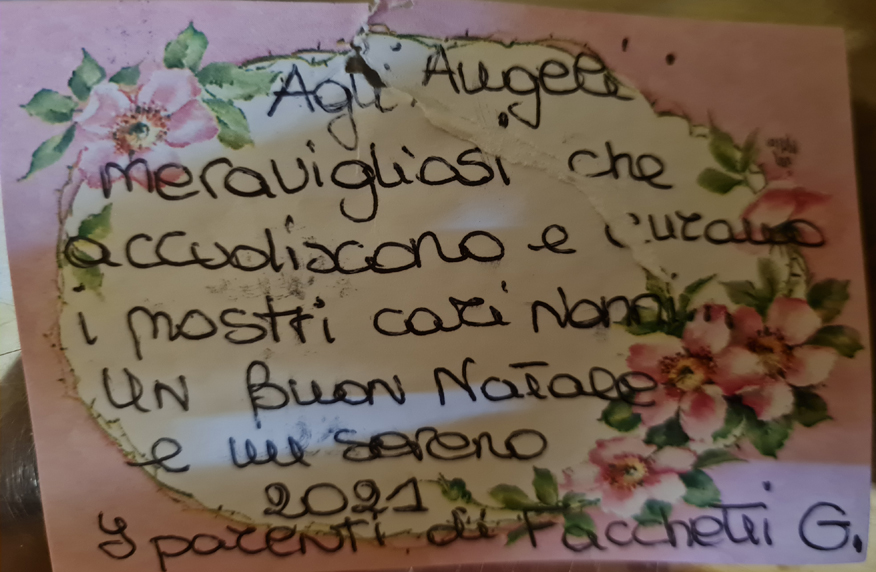 Agli Angeli
meravigliosi che
accudiscono e curano
i nostri cari Nonni.
UN BUON NATALE
e un sereno
2021
I parenti di Facchetti G.